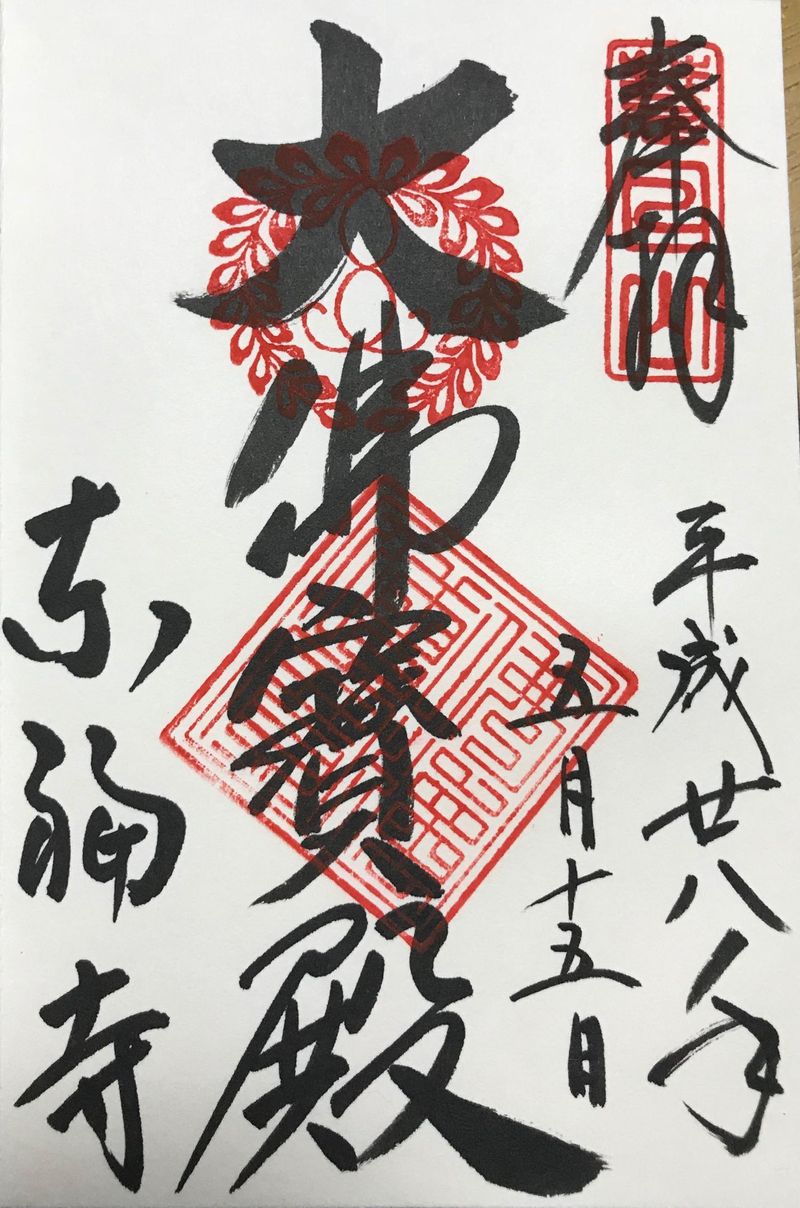 奉拝
平成廿八年
五月十五日
大佛寶殿
東福寺